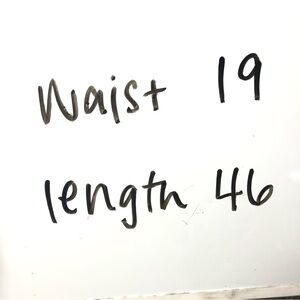 Waist 19
length 46